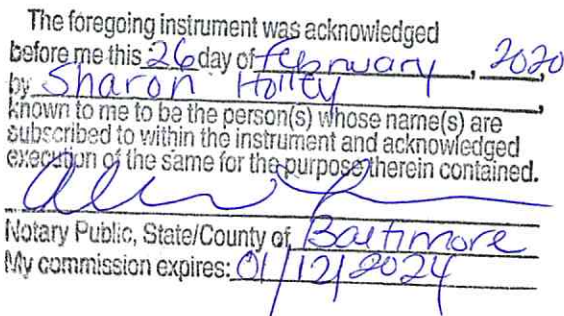 The foregoing instrument was acknowledged
before me this 26 day of february, 2020
by Sharon Holley,
known to me to be the person(s) whose name(s) are
subscribed to within the instrument and acknowledged
execution of the same for the purpose therein contained.
Notary Public, State/County of Baltimore
My commission expires: 01/12/2024